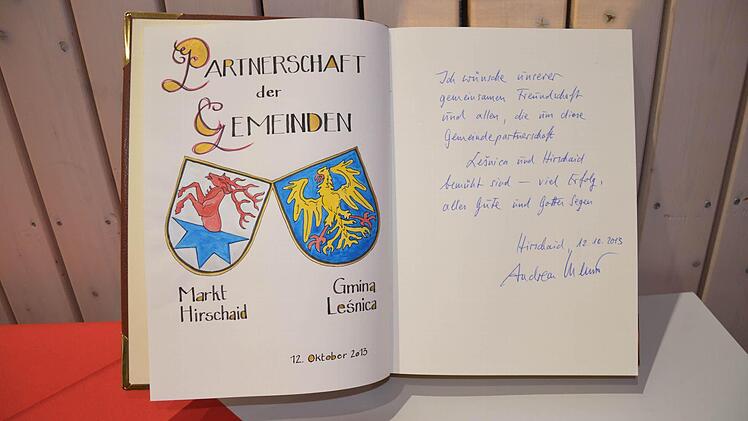 PARTNERSCHAFT
der
GEMEINDEN
Markt
Hirschaid
Gmina
Leśnica
12. Oktober 2013
Ich wünsche unserer
gemeinsamen Freundschaft
und allen, die um diese
Gemeindepartnerschaft
Leśnica und Hirschaid
bemüht sind – viel Erfolg,
alles Gute und Gottes Segen
Hirschaid, 12.10.2013
Andreas